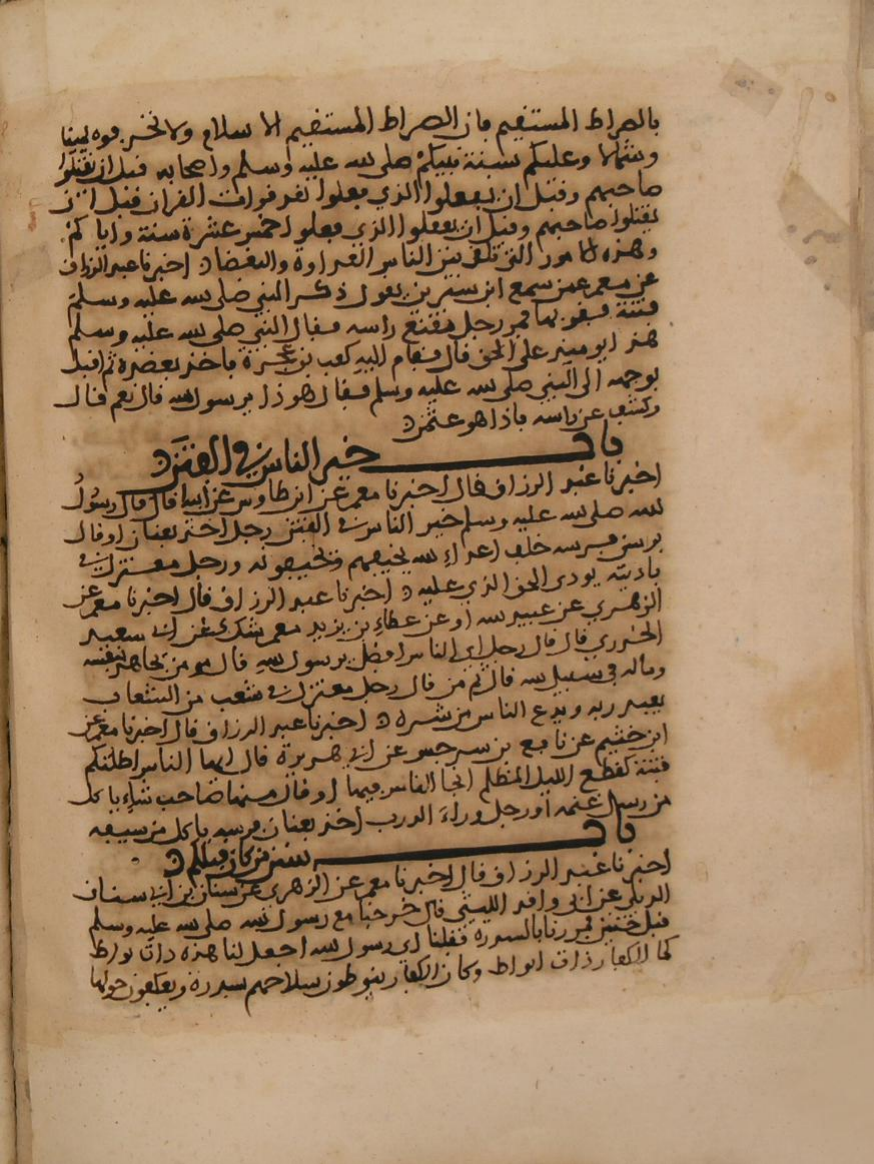 بالصراط المستقيم فان الصراط المستقيم الاسلام ولا تحرفوه يمينا
وشمالا وعليكم بسنة نبيكم صلى الله عليه وسلم واصحابه قبل ان يقتلوا
صاحبهم وقبل ان يفعلوا الذي فعلوا لقد قرات القران قبل ان
يقتلوا صاحبهم وقبل ان يفعلوا الذي فعلوا خمس عشرة سنة واياكم
وهذه الامور التي تلقي بين الناس العداوة والبغضاء اخبرنا عبد الرزاق
عن معمر عمن سمع ابن سيرين يقول ذكر النبي صلى الله عليه وسلم
فتنة فقربها فمر رجل مقنع راسه فقال النبي صلى الله عليه وسلم
هذا يوميذ على الحق قال فقام اليه كعب بن عجرة فاخذ بعضده ثم اقبل
بوجهه الى النبي صلى الله عليه وسلم فقال هو ذا يرسول الله قال نعم قال
وكشف عن راسه فاذا هو عثمن
باب خير الناس في الفتن
اخبرنا عبد الرزاق قال اخبرنا معمر عن ابن طاوس عن ابيه قال قال رسول
الله صلى الله عليه وسلم خير الناس في الفتن رجل اخذ بعنان او قال
برسن فرسه خلف اعداء الله يخيفهم ويخيفونه ورجل معتزل في
باديته يودى الحق الذي عليه اخبرنا عبد الرزاق قال اخبرنا معمر عن
الزهري عن عبيد الله او عن عطاء بن يزيد معمر شك عن ابي سعيد
الخدري قال قال رجل اي الناس افضل يرسول الله قال مومن يجاهد بنفسه
وماله في سبيل الله قال ثم من قال رجل معتزل في شعب من الشعاب
يعبد ربه ويدع الناس من شره اخبرنا عبد الرزاق قال اخبرنا معمر عن
ابن خثيم عن نافع بن سرجس عن ابي هريرة قال ايها الناس اظلتكم
فتنة كقطع الليل المظلم انجا الناس فيها او قال منها صاحب شاء ياكل
من رسل غنمه او رجل وراء الدرب اخذ بعنان فرسه ياكل من سيفه
باب سنن من كان قبلكم
اخبرنا عبد الرزاق قال اخبرنا معمر عن الزهري عن سنان بن ابي سنان
الديلي عن ابي واقد الليثي قال خرجنا مع رسول الله صلى الله عليه وسلم
قبل حنين فمررنا بالسدرة فقلنا اي رسول الله اجعل لنا هذه ذات انواط
كما للكفار ذات انواط وكان الكفار ينوطون سلاحهم بسدرة ويعكفون حولها